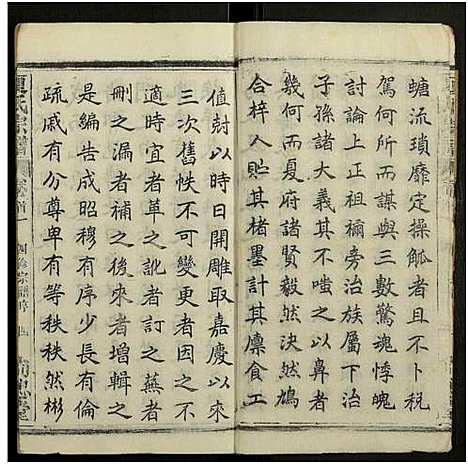 螗流瑣靡定操觚者且不卜稅
駕何所而謀與三數驚魂悸魄
討論上正祖禰旁治族屬下治
子孫諸大義其不嗤以鼻者
幾何而夏府諸賢毅然決然鳩
合梓人貼其楮墨計其廩食工
值封以時日開雕取嘉慶以來
三次舊帙不可變更者仍之不
適時宜者革之訛者訂之蕪者
刪之漏者補之後來者增輯之
是編告成昭穆有序少長有倫
疏戚有分尊卑有等秩秩然彬
夏氏宗譜